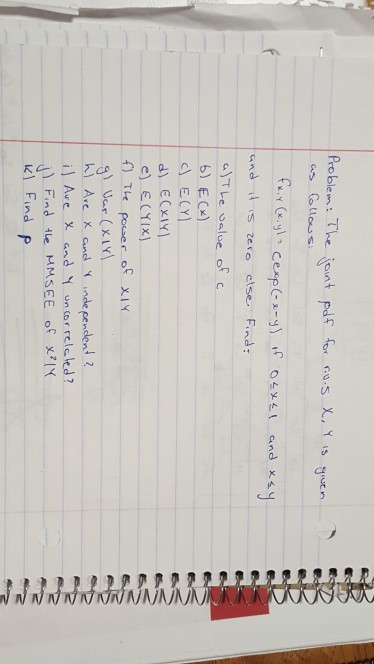 Problem: The joint pdf for r.v.s X, Y is given
as follows:
fx,y(x,y) = c exp(-x-y) if 0≤x≤1 and x≤y
and it is zero else. Find:
a) The value of c
b) E(X)
c) E(Y)
d) E(X|Y)
e) E(Y|X)
f) The power of X|Y
g) Var(X|Y)
h) Are X and Y independent?
i) Are X and Y uncorrelated?
j) Find the MMSEE of X²|Y
k) Find ρ